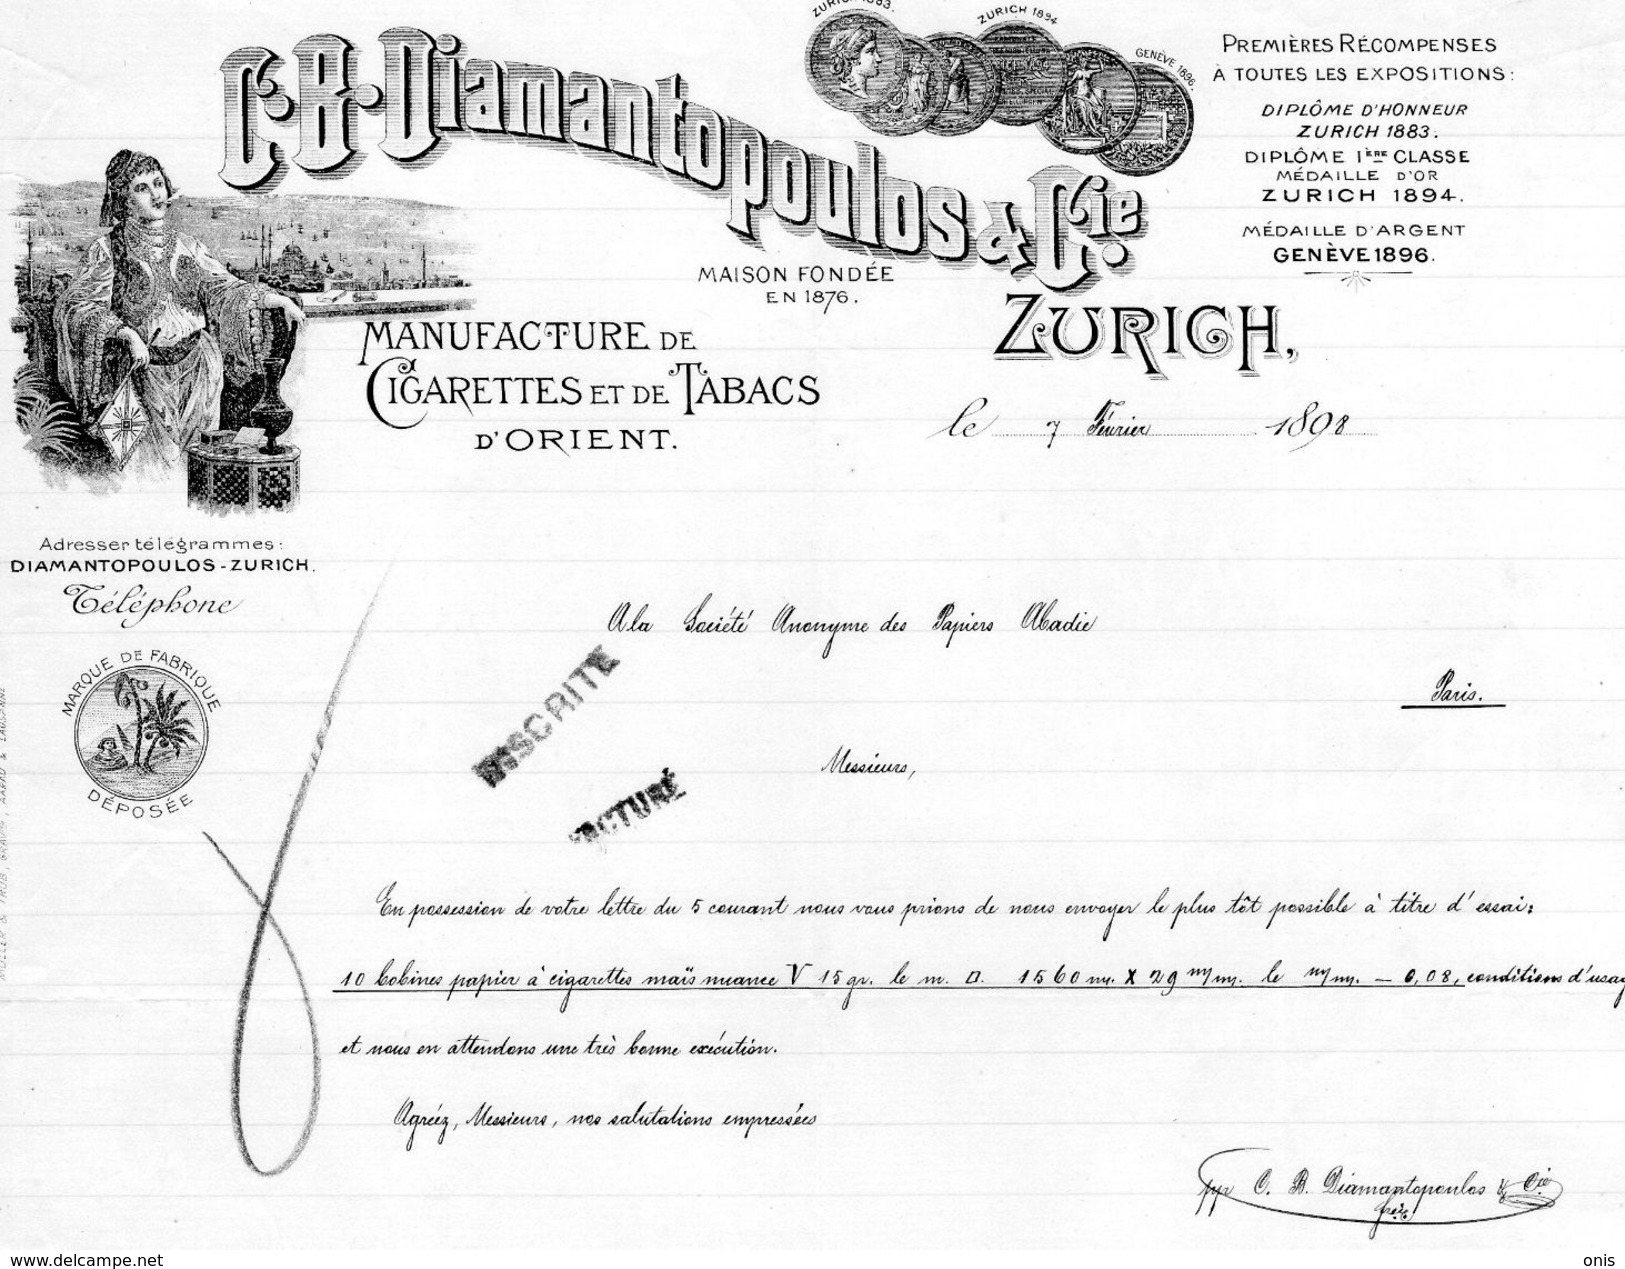 ZURICH 1883.
ZURICH 1894
GENÈVE 1896.
C. B. Diamantopoulos & Cie.
PREMIÈRES RÉCOMPENSES
À TOUTES LES EXPOSITIONS:
DIPLÔME D'HONNEUR
ZURICH 1883.
DIPLÔME IÈRE CLASSE
MÉDAILLE D'OR
ZURICH 1894.
MÉDAILLE D'ARGENT
GENÈVE 1896.
MAISON FONDÉE
EN 1876.
MANUFACTURE DE
CIGARETTES ET DE TABACS
D'ORIENT.
ZURICH,
le 7 Février 1898
Adresser télégrammes:
DIAMANTOPOULOS-ZURICH.
Téléphone
MARQUE DE FABRIQUE
DÉPOSÉE
MÜLLER & TRÜB, GRAVRS, AARAU & LAUSANNE
A la Société Anonyme des Papiers Abadie
Paris.
INSCRITE
FACTURÉ
Messieurs,
En possession de votre lettre du 5 courant nous vous prions de nous envoyer le plus tôt possible à titre d'essai:
10 bobines papier à cigarettes maïs nuance V 15 gr. le m. □. 1560 m. X 29 m/m. le m/m. — 0,08, conditions d'usag
et nous en attendons une très bonne exécution.
Agréez, Messieurs, nos salutations empressées
ppr C. B. Diamantopoulos & Cie
http://www.delcampe.net
onis